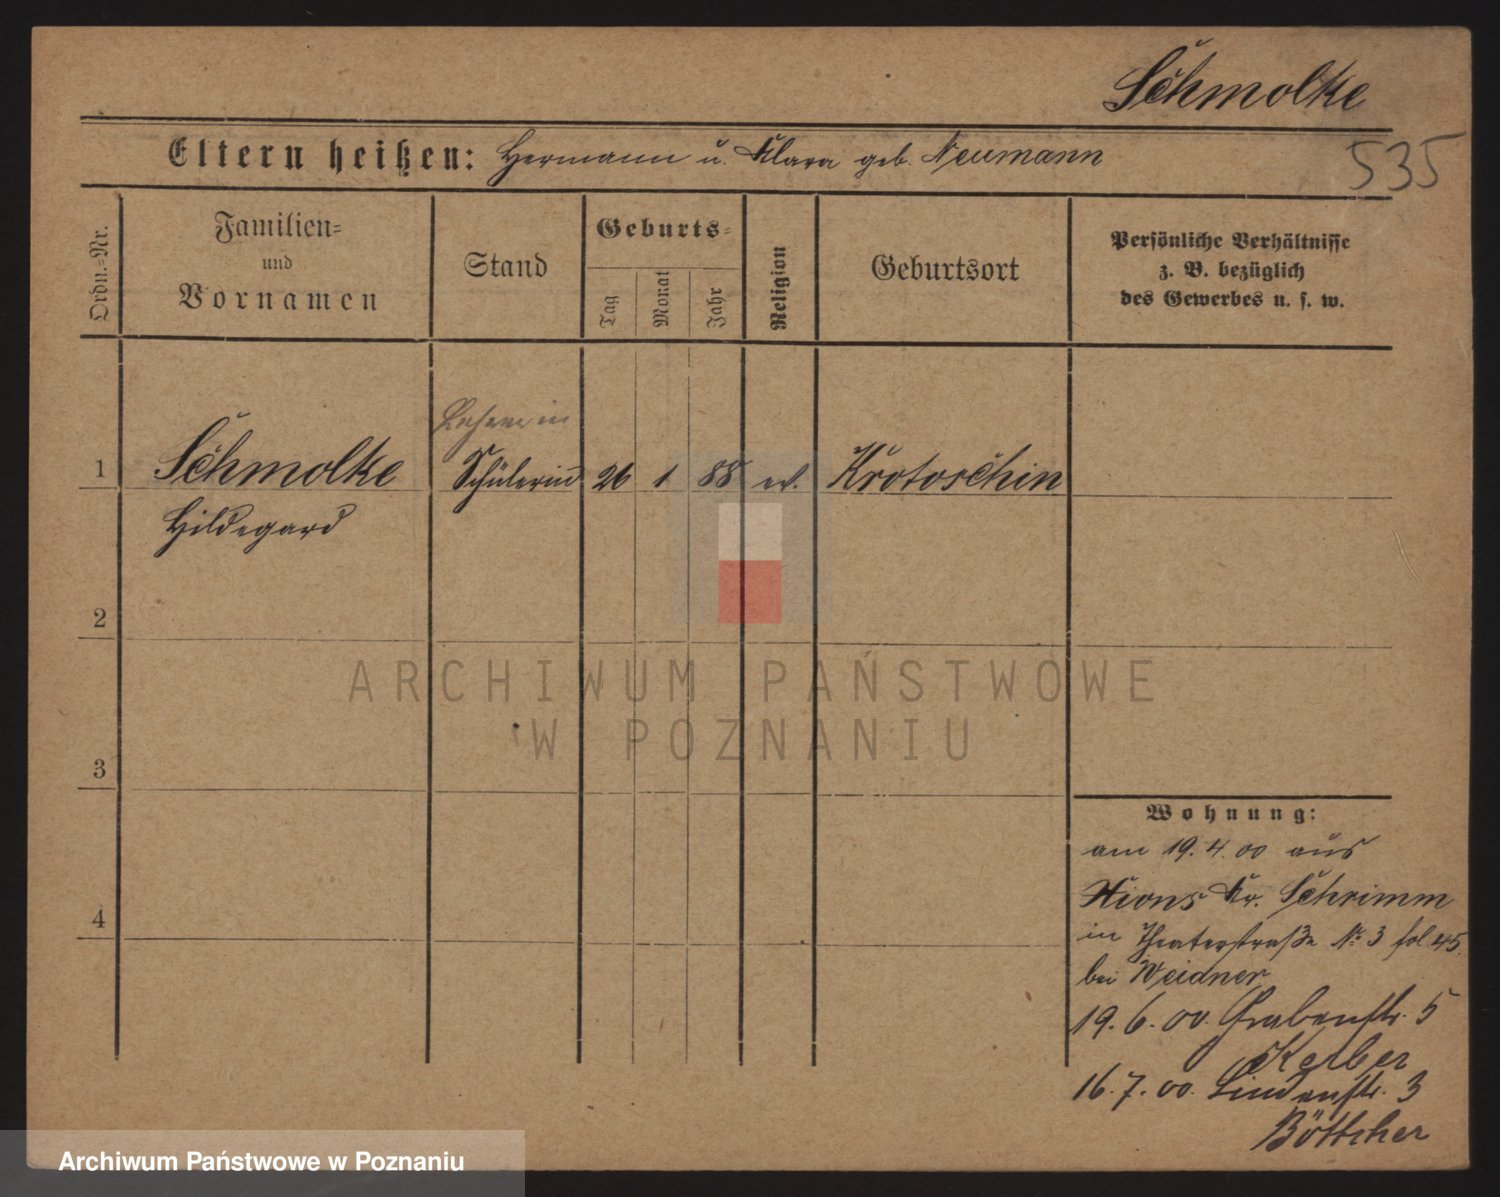 Schmolke
535
Eltern heißen: Hermann u. Klara geb. Neumann
Ordn.=Nr.
Familien=
und
Vornamen
Stand
Geburts=
Tag
Monat
Jahr
Religion
Geburtsort
Persönliche Verhältnisse
z. B. bezüglich
des Gewerbes u. s. w.
Lehrerin
1 Schmolke Schülerin 26 1 88 ev. Krotoschin
Hildegard
2
3
4
ARCHIWUM PAŃSTWOWE
W POZNANIU
Wohnung:
am 19.4.00 aus
Xions Kr. Schrimm
in Theaterstraße No 3 fol 45.
bei Weidner
19.6.00. Grabenstr. 5
Kerber
16.7.00. Lindenstr. 3
Böttcher
Archiwum Państwowe w Poznaniu